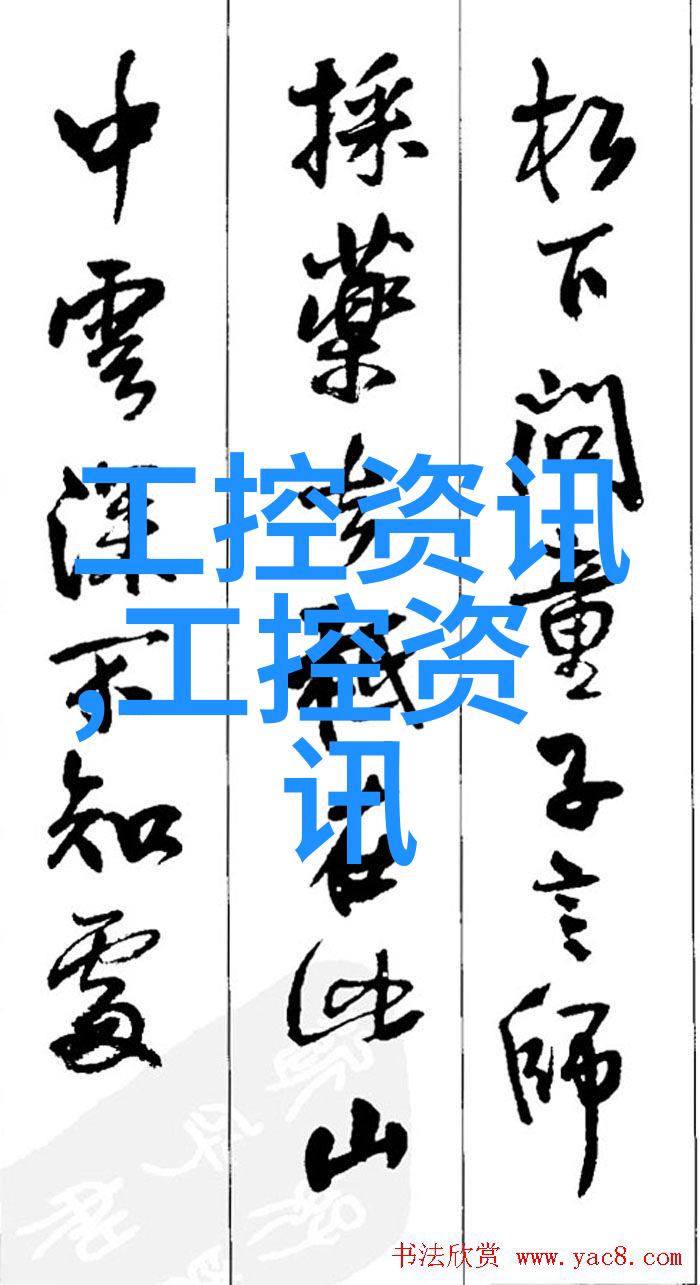 松下问童子言师
採薬去秖在此山
中雲深不知處
工控资讯
,工控资
讯
书法欣赏 www.yac8.com